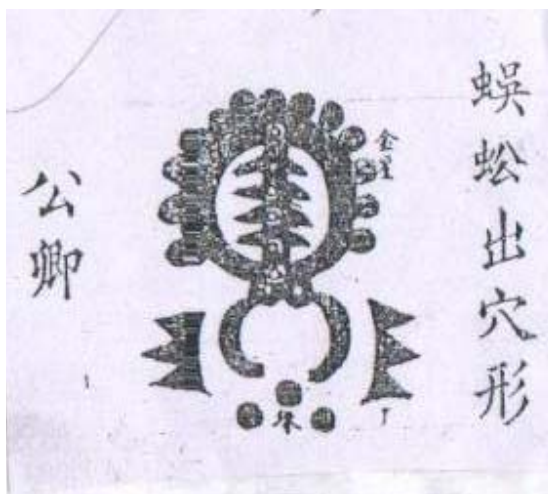 蜈蚣出穴形
金星
公卿